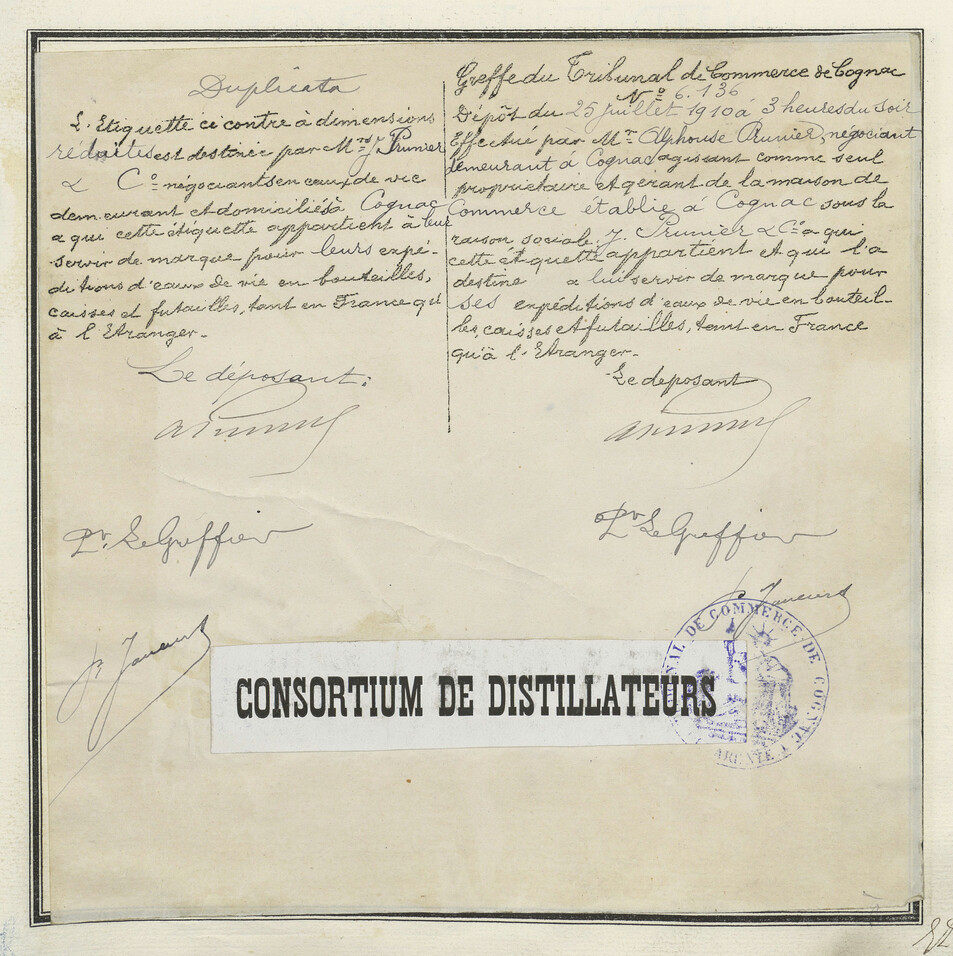 Duplicata
L'Etiquette ci contre à dimensions
réduites est destinée par Mrs J. Prunier
& Co négociants en eaux de vie
demeurant et domiciliés à Cognac
a qui cette étiquette appartient à leur
servir de marque pour leurs expé-
ditions d'eaux de vie en bouteilles,
caisses et futailles, tant en France qu'
à l'Etranger.-
Le déposant:
APrunier
Pr. Le Greffier
Greffe du Tribunal de Commerce de Cognac
No 6.136
Dépôt du 25 juillet 1910 à 3 heures du soir
Effectué par Mr Alphonse Prunier, négociant
demeurant à Cognac agissant comme seul
propriétaire et gérant de la maison de
Commerce établie à Cognac sous la
raison sociale J. Prunier & Co a qui
cette étiquette appartient et qui l'a
destine a lui servir de marque pour
ses expéditions d'eaux de vie en bouteil-
les, caisses et futailles, tant en France
qu'à l'Etranger.-
Le deposant
APrunier
Pr Le Greffier
CONSORTIUM DE DISTILLATEURS
TRIBUNAL DE COMMERCE DE COGNAC